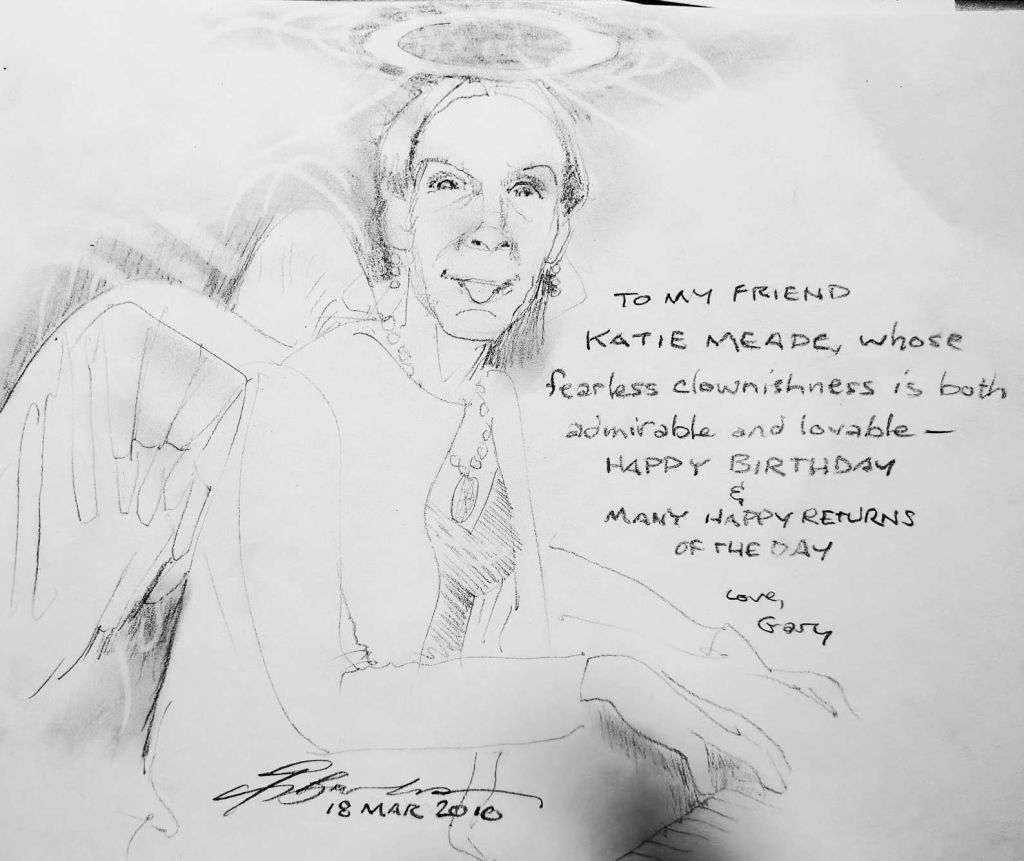 TO MY FRIEND
KATIE MEADE, whose
fearless clownishness is both
admirable and lovable —
HAPPY BIRTHDAY
&
MANY HAPPY RETURNS
OF THE DAY
Love,
Gary
18 MAR 2010